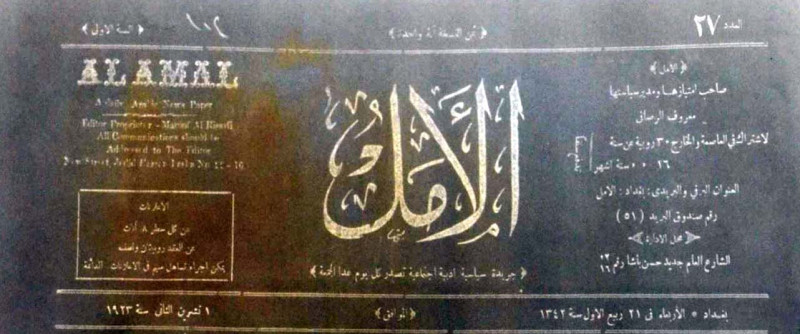 العدد ٢٧
﴿ ثمن النسخة آنة واحدة ﴾
﴿ السنة الاولى ﴾
﴿ الامل ﴾
صاحب امتيازها ومدير سياستها
معروف الرصافي
لاشتراك في العاصمة والخارج ٣٠ روبية عن سنة
١٦ » » ستة اشهر
العنوان البرقي والبريدي: بغداد: الأمل
رقم صندوق البريد (٥١)
﴿ محل الادارة ﴾
الشارع العام جديد حسن باشا رقم
الأمل
﴿ جريدة سياسية ادبية اجتماعية تصدر كل يوم عدا الجمعة ﴾
AL AMAL
A daily Arabic News Paper
Editor Proprietor - Maruf Al Risafi
All Communications should be
Addressed to The Editor
New Street, Jedid Hassan Pasha No 12 -
الاعلانات
عن كل سطر ٨ آنات
عن العقد روبيتان ونصف
يمكن اجراء تساهل مهم في الاعلانات
بغداد * الأربعاء في ٢١ ربيع الاول سنة ١٣٤٢
﴿ الموافق ﴾
١ تشرين الثاني سنة ١٩٢٣